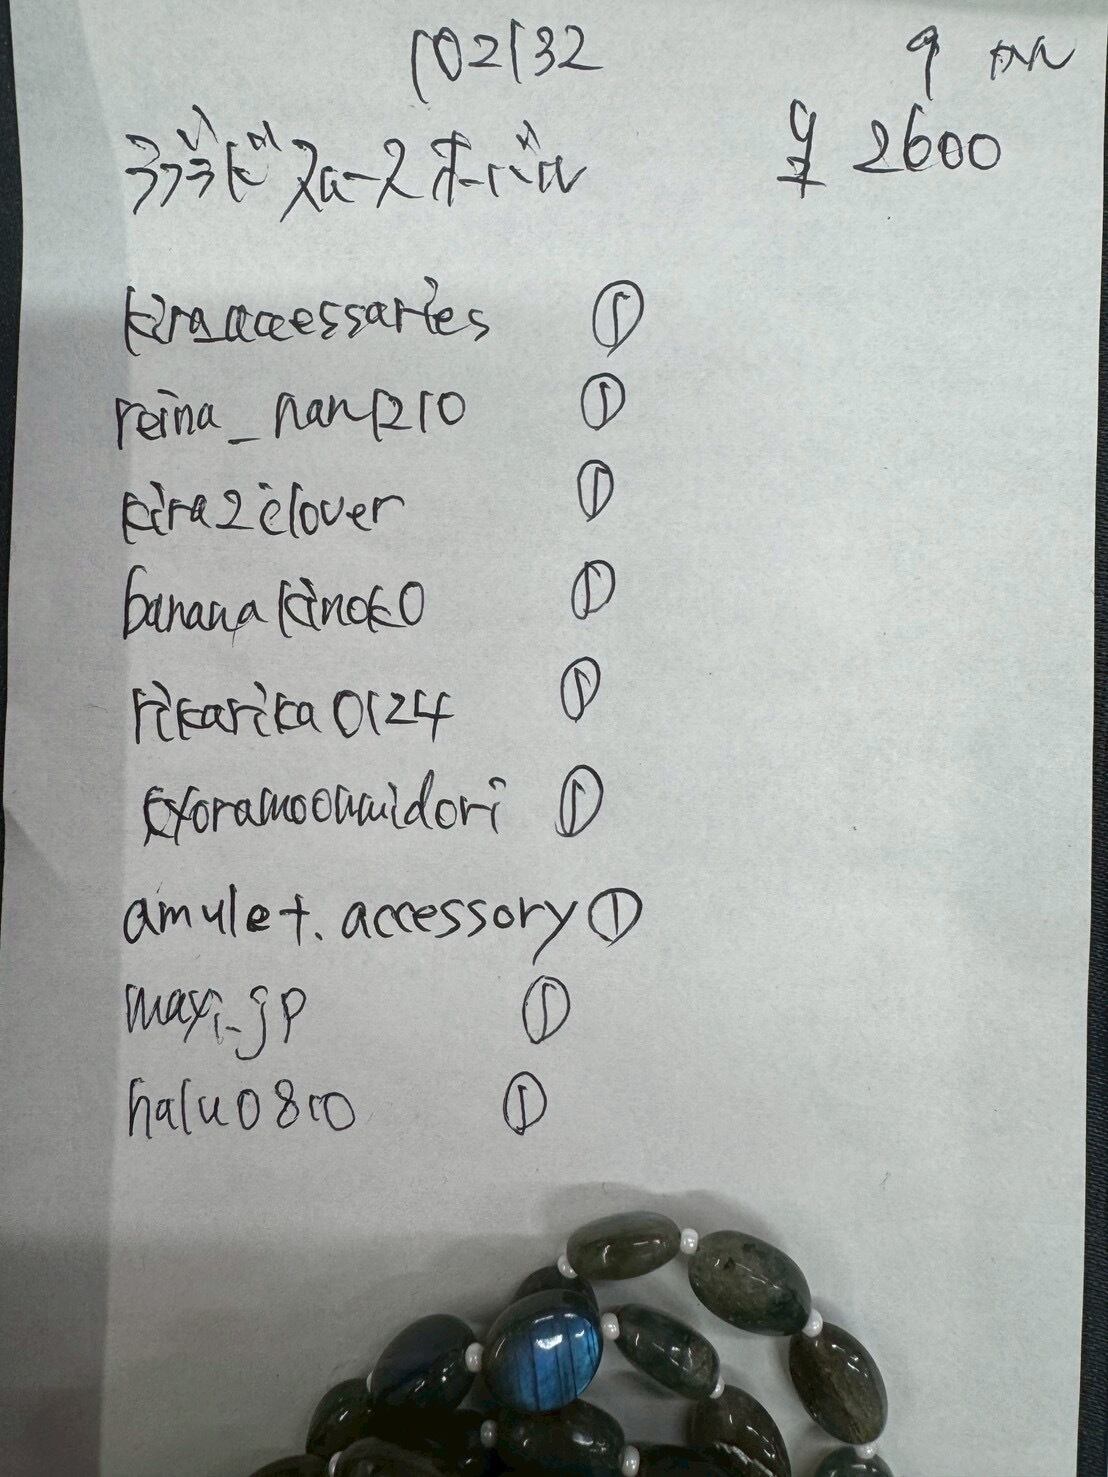 102132 9 mm
ラブラドライト スムースオーバル ¥ 2600
kira_accessaries ①
reina_nan1210 ①
kira2clover ①
bananakinoko ①
rikarika0124 ①
kyoramoonmidori ①
amulet.accessory ①
maxi_jp ①
halu0810 ①